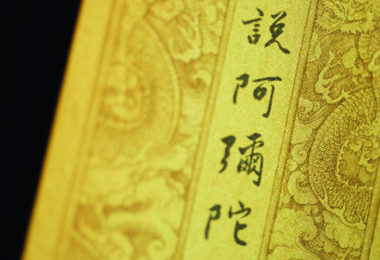 說阿彌陀